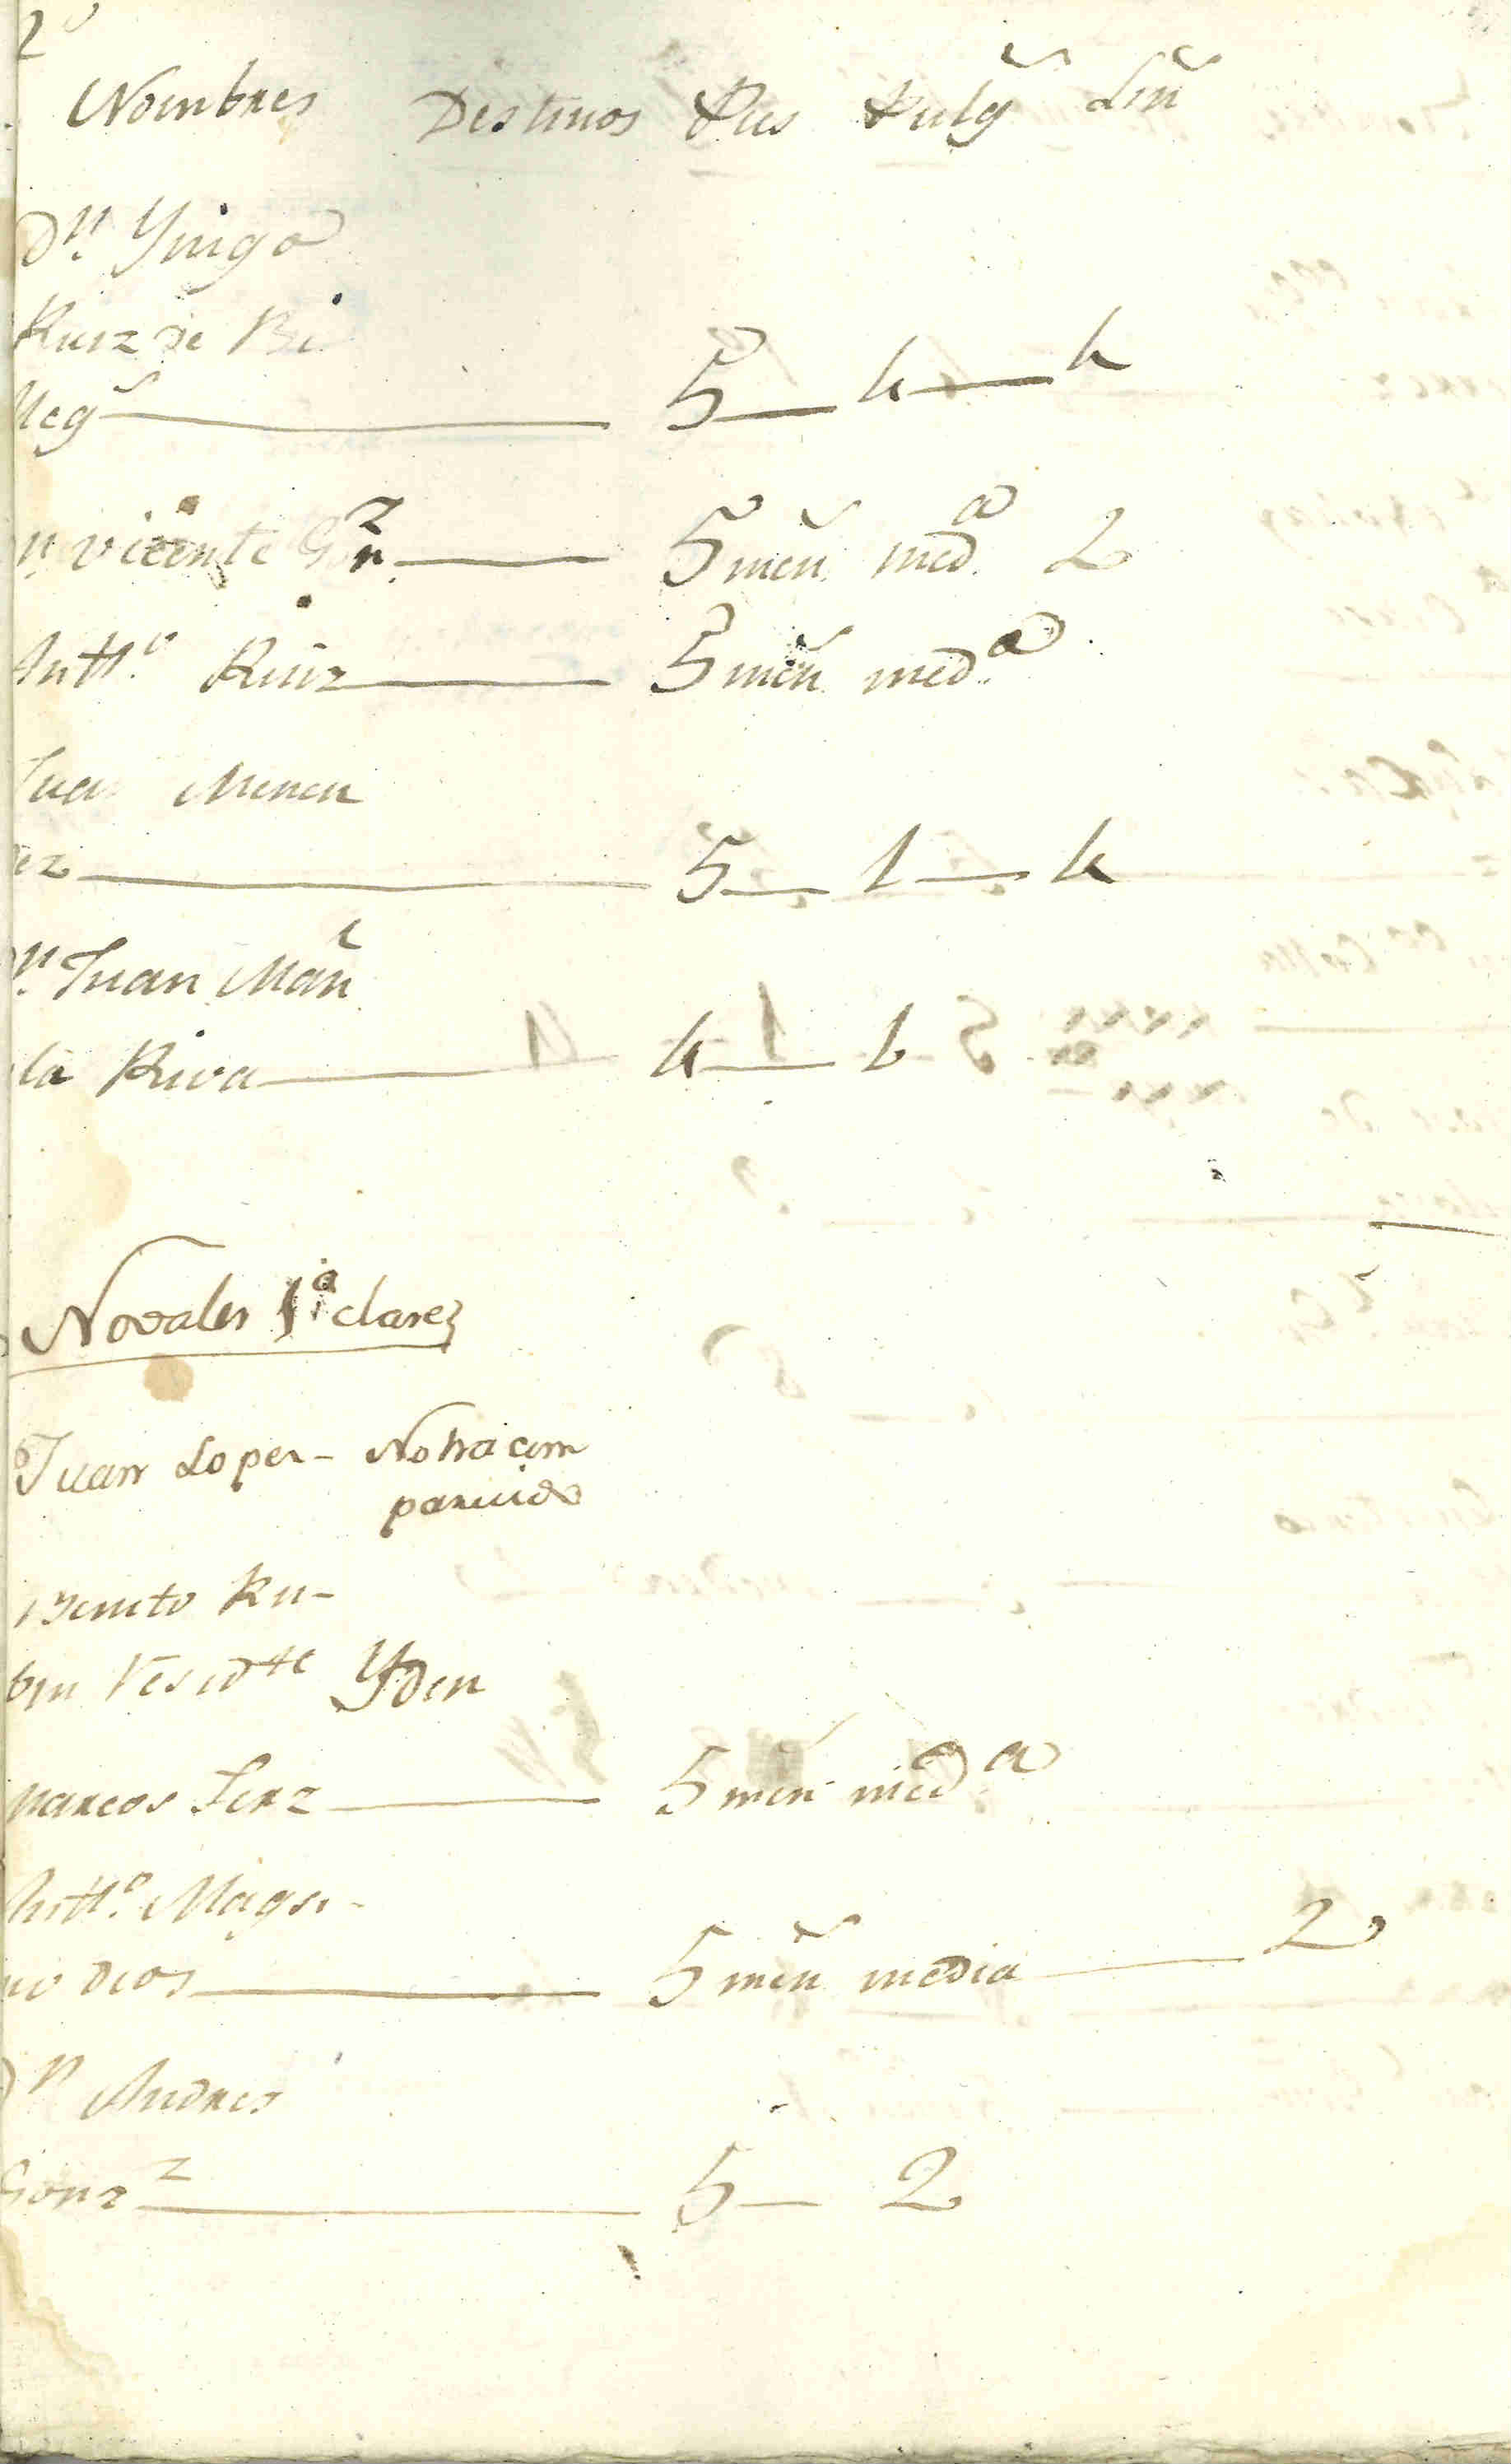 2
Nombres Destinos Pies Pulg.s Lin.s
D.n Yñigo
Ruiz de Bi
lleg.s 5 4 4
n. Vicente Gonz. 5 men. med.a 2
Antt.o Ruiz 5 men. med.a
Juan Menen
ez 5 1 4
n. Juan Man.l
la Riva 4 1
Novales 1.a clase
Juan Lopez - No ha com
parecido
Benito Ru-
bin resid.te Yden
Marcos Ferz 5 men. med.a
Antt.o Magn-
no Dios 5 men. media 2
n Andres
Gonz.z 5 2